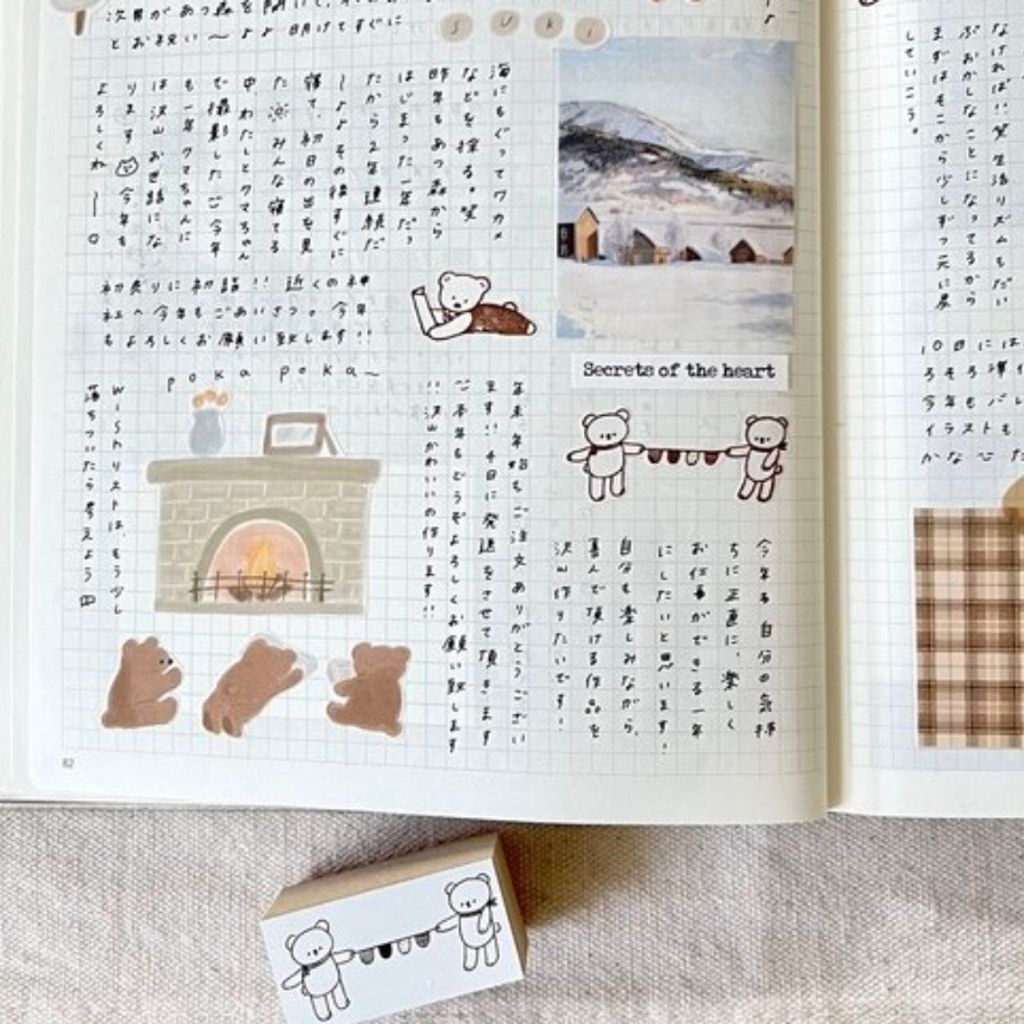 次男があつ森を開いて、
とお祝い〜♪♪ 明けてすぐに
SUKI
海にもぐってワカメ
などを採る。笑
昨年も あつ森から
はじまった一年だっ
たから2年連続だ
ー♪♪ その後すぐに
寝て、初日の出を見
た みんな寝てる
中 わたしとクマちゃん
で撮影した 今年
も一年 クマちゃんに
は沢山 お世話にな
ります 今年も
よろしくね ー。
初売りに初詣!! 近くの神
社へ今年もごあいさつ。今年
もよろしくお願い致します!!
Secrets of the heart
poka poka~
年末、年始も ご注文 ありがとう ござい
ます!! 4日に発送をさせて頂きます
ご本年もどうぞよろしくお願い致します
!! 沢山かわいいの作ります!!
Wishリストは、もう少し
落ちついたら考えよう
今年も 自分の気持
ちに正直に、楽しく
お仕事ができる一年
にしたいと思います!
自分も楽しみながら、
喜んで頂ける作品を
沢山作りたいです!
82
なければ!! 笑 生活リズムもだい
ぶおかしなことになってるから
まずはそこから少しずつ元に戻
していこう。
10日には
ろそろ
今年もバレ
イラストも
かな た